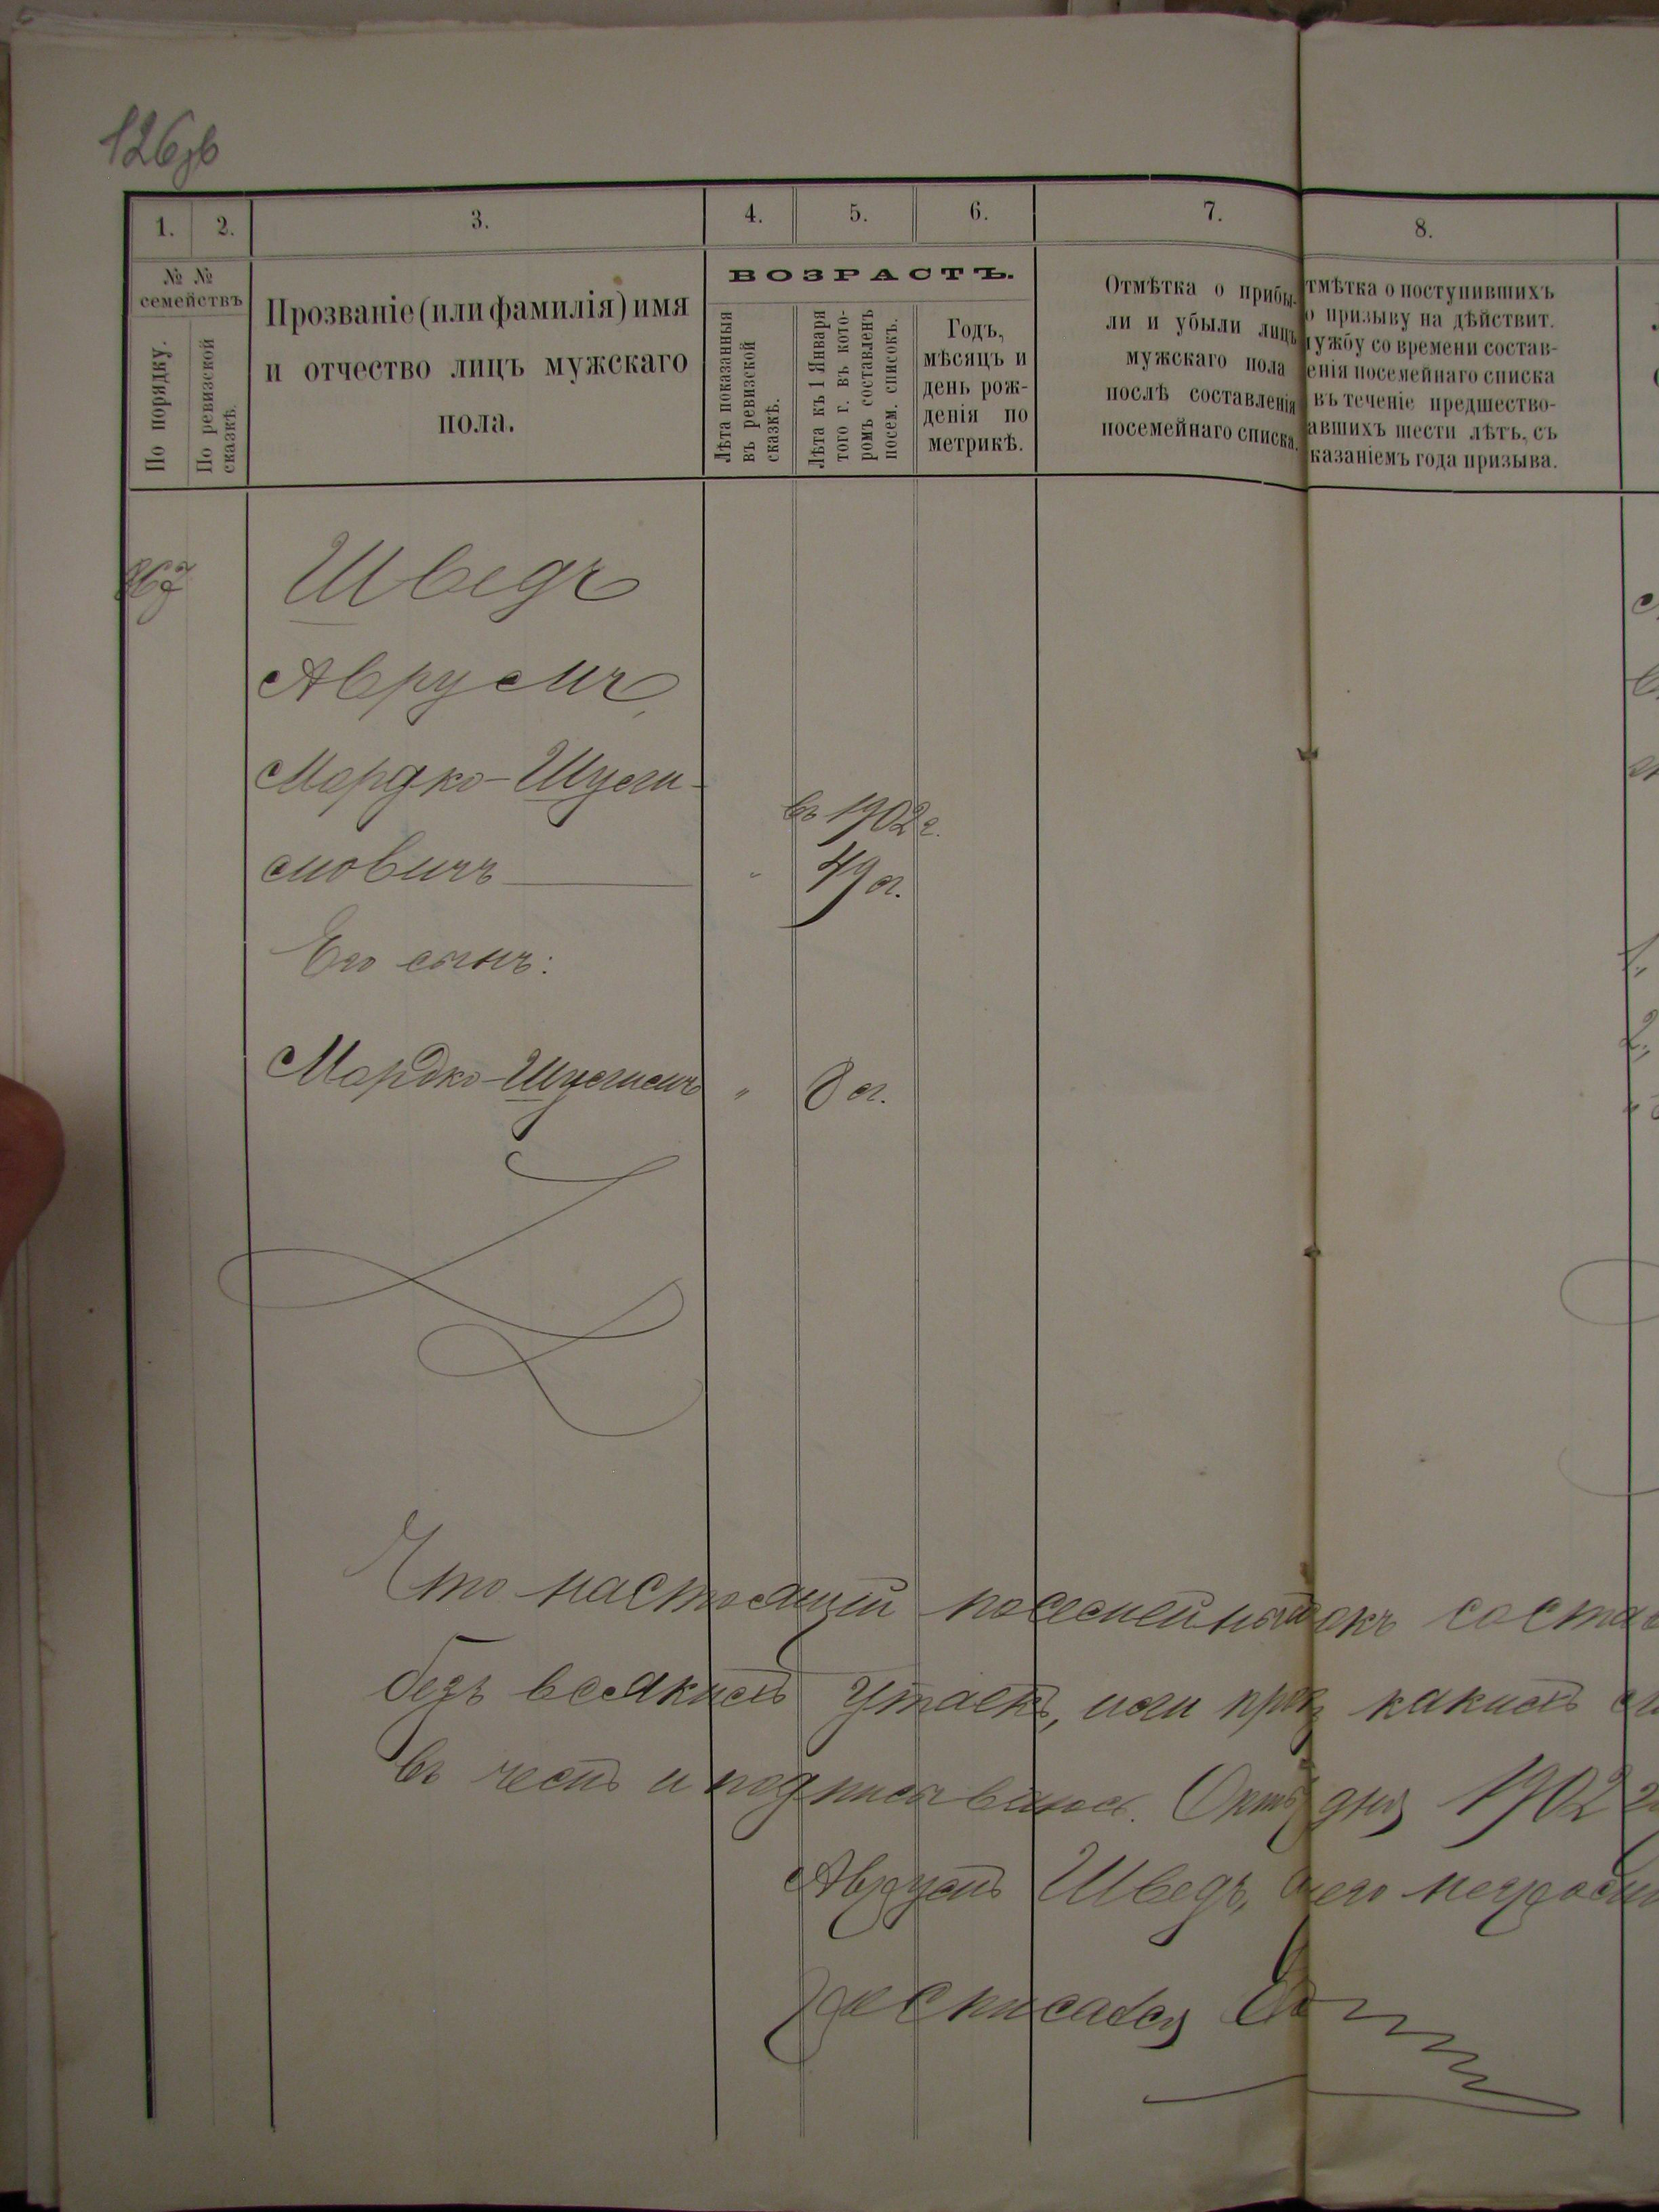 126об
1. 2. 3. 4. 5. 6. 7. 8.
№ №
семействъ
По порядку.
По ревизской
сказкѣ.
Прозваніе (или фамилія) имя
и отчество лицъ мужскаго
пола.
ВОЗРАСТЪ.
Лѣта показанныя
въ ревизской
сказкѣ.
Лѣта къ 1 Января
того г. въ кото-
ромъ составленъ
посем. списокъ.
Годъ,
мѣсяцъ и
день рож-
денія по
метрикѣ.
Отмѣтка о прибы-
ли и убыли лицъ
мужскаго пола
послѣ составленія
посемейнаго списка.
тмѣтка о поступившихъ
о призыву на дѣйствит.
лужбу со времени состав-
енія посемейнаго списка
въ теченіе предшество-
авшихъ шести лѣтъ, съ
казаніемъ года призыва.
867
Шведъ
Аврумъ
Мордко-Шули-
мовичъ
въ 1902 г.
" 49 л.
Его сынъ:
Мордко-Шулимъ " 8 л.
1.,
2.,
Что настоящій посемейный окъ состав
безъ всякихъ утаекъ, или какихъ
въ чемъ и подписываюсь. дня 1902 г
Аврумъ Шведъ, а его неграмот
росписался